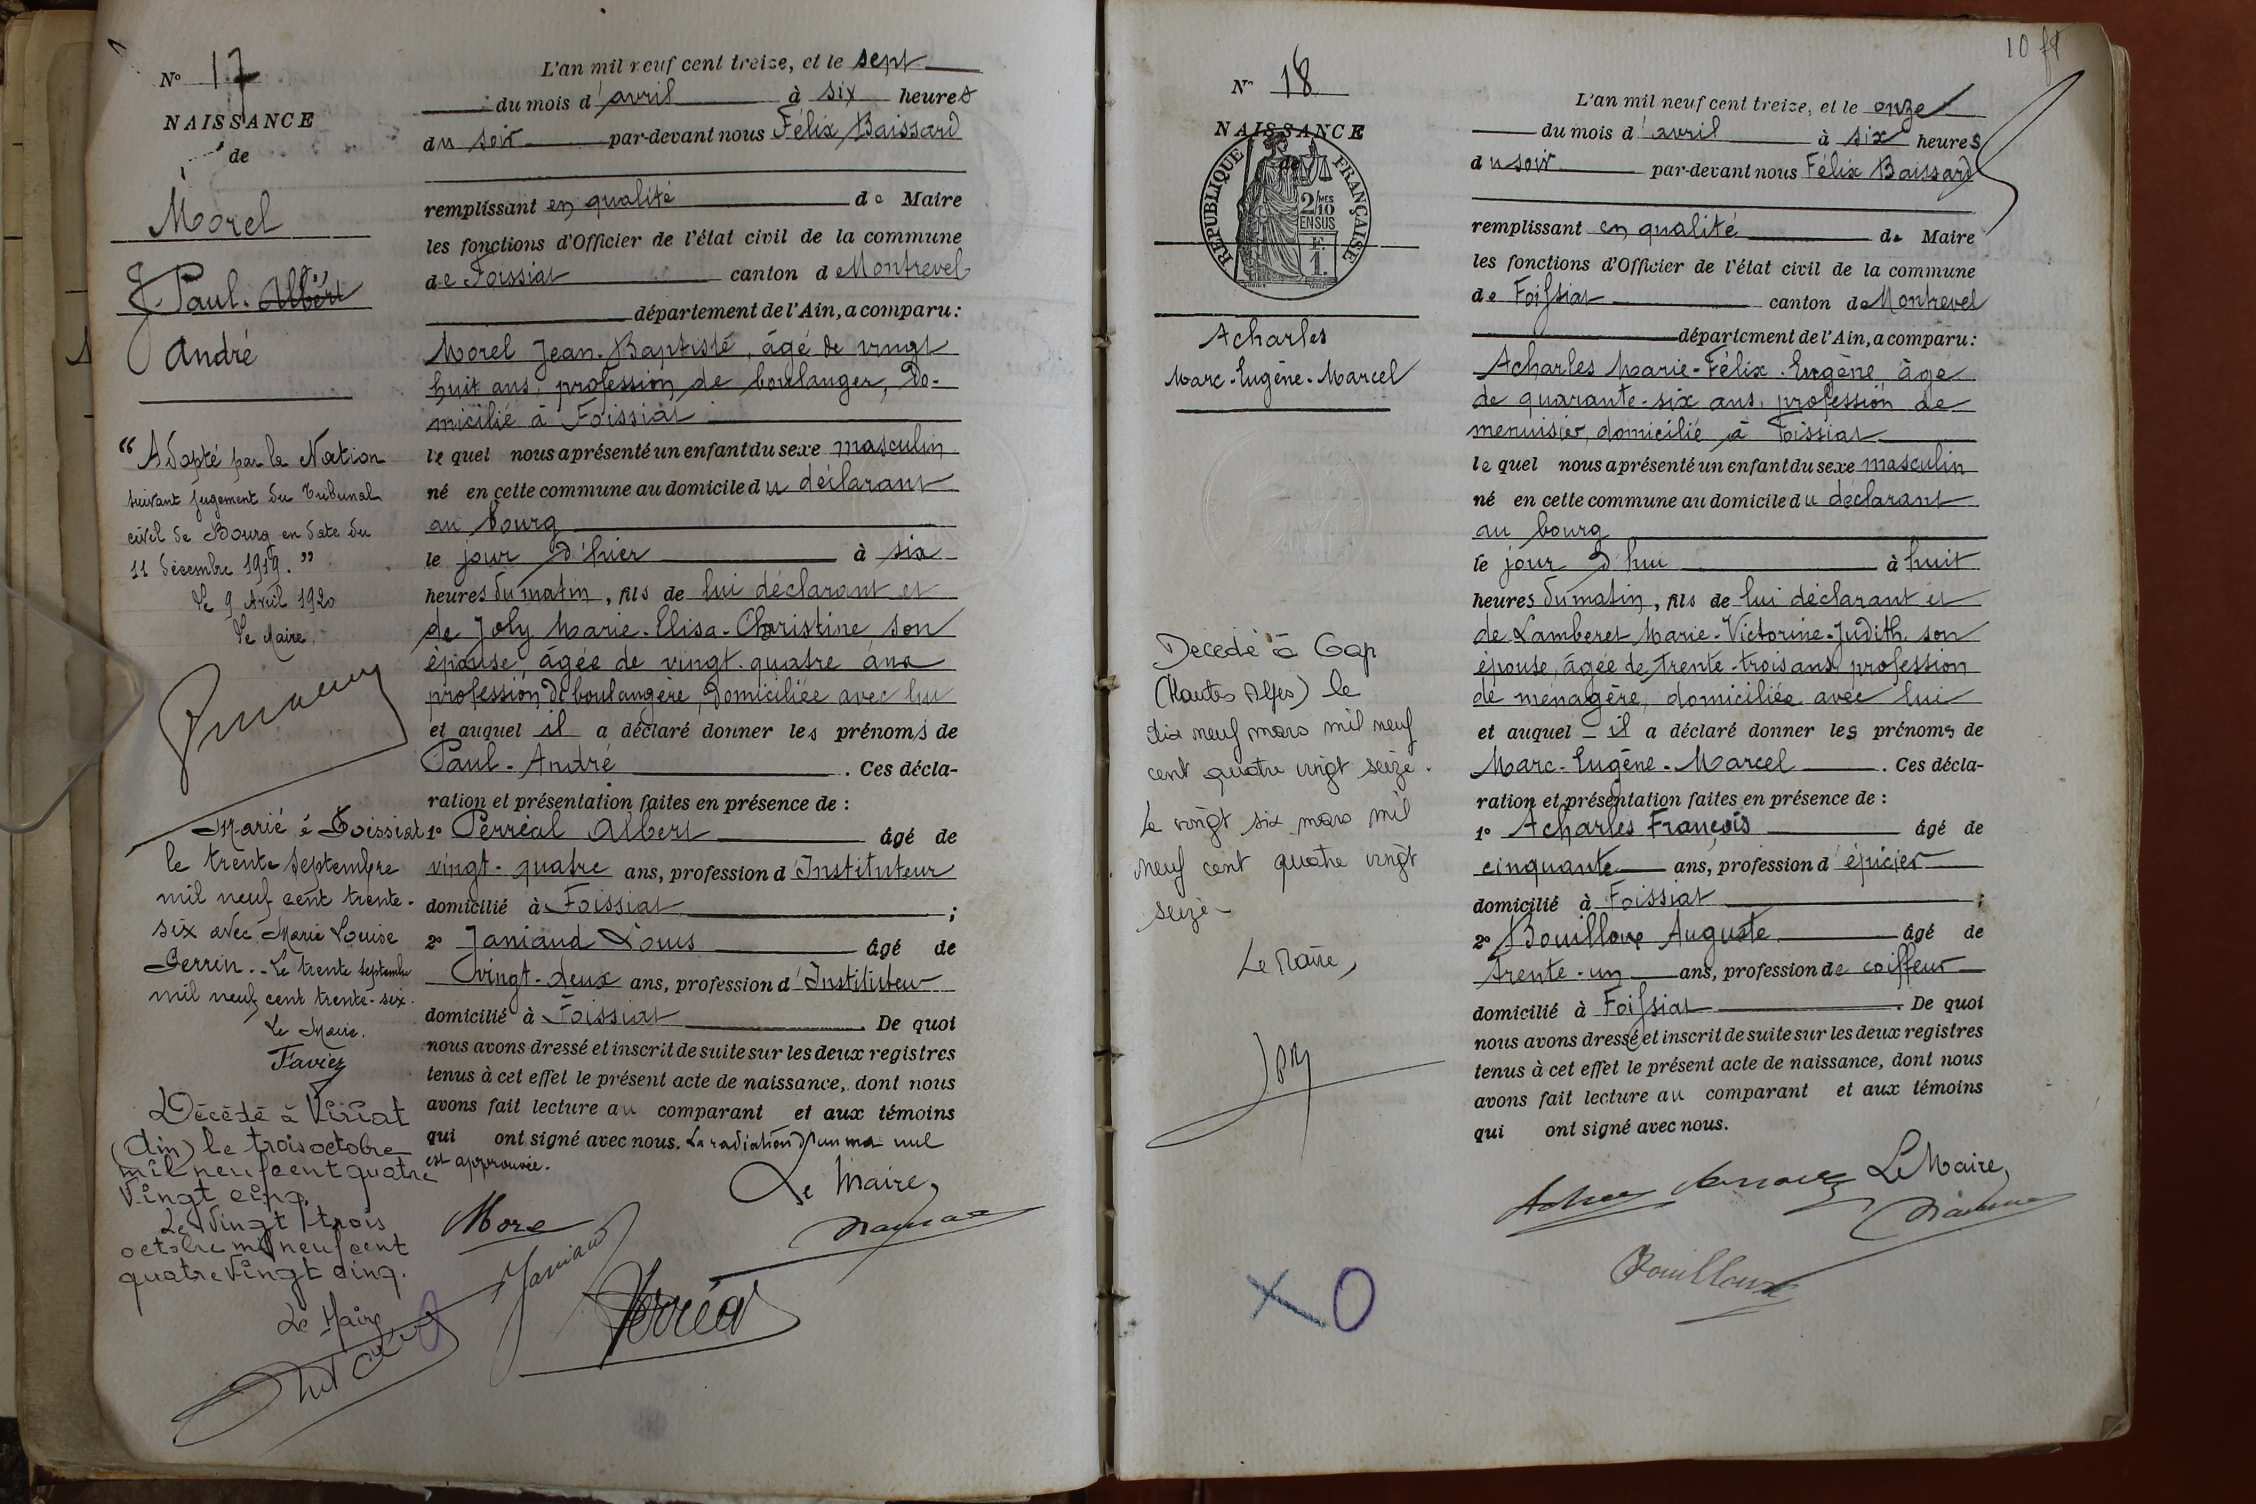 N° 17
NAISSANCE
de
Morel
Paul-Albert
André
"Adopté par la Nation
suivant jugement du Tribunal
civil de Bourg en date du
11 décembre 1919."
Le 9 Avril 1920
Le Maire,
Marié à Foissiat
le trente septembre
mil neuf cent trente-
six avec Marie Louise
Perrin. - Le trente septembre
mil neuf cent trente-six.
Le Maire.
Décédé à Viriat
(Ain) le trois octobre
mil neuf cent quatre
vingt cinq.
Le vingt trois
octobre mil neuf cent
quatre vingt cinq.
Le Maire
L'an mil neuf cent treize, et le sept
du mois d'avril à six heures
du soir par-devant nous Félix Baissard
remplissant en qualité de Maire
les fonctions d'Officier de l'état civil de la commune
de Foissiat canton de Montrevel
département de l'Ain, a comparu:
Morel Jean-Baptiste, âgé de vingt
huit ans, profession de boulanger, do-
micilié à Foissiat
lequel nous a présenté un enfant du sexe masculin
né en cette commune au domicile du déclarant
au bourg
le jour d'hier à six
heures du matin, fils de lui déclarant et
de Joly Marie-Elisa-Christine son
épouse, âgée de vingt-quatre ans
profession de boulangère, domiciliée avec lui
et auquel il a déclaré donner les prénoms de
Paul-André. Ces décla-
ration et présentation faites en présence de :
1° Perréal Albert âgé de
vingt-quatre ans, profession d'Instituteur
domicilié à Foissiat ;
2° Janiaud Louis âgé de
vingt-deux ans, profession d'Instituteur
domicilié à Foissiat. De quoi
nous avons dressé et inscrit de suite sur les deux registres
tenus à cet effet le présent acte de naissance, dont nous
avons fait lecture au comparant et aux témoins
qui ont signé avec nous. La radiation d'un mot nul
est approuvée.
Le Maire,
Morel
Janiaud
Perréal
10 ft
N° 18
NAISSANCE
de
RÉPUBLIQUE FRANÇAISE
2/10 MES
EN SUS
F.
1.
Acharles
Marc-Eugène-Marcel
Décédé à Gap
(Hautes Alpes) le
dix neuf mars mil neuf
cent quatre vingt seize.
Le vingt six mars mil
neuf cent quatre vingt
seize-
Le Maire,
L'an mil neuf cent treize, et le onze
du mois d'avril à six heures
du soir par-devant nous Félix Baissard
remplissant en qualité de Maire
les fonctions d'Officier de l'état civil de la commune
de Foissiat canton de Montrevel
département de l'Ain, a comparu:
Acharles Marie-Félix-Eugène âgé
de quarante-six ans, profession de
menuisier, domicilié à Foissiat
lequel nous a présenté un enfant du sexe masculin
né en cette commune au domicile du déclarant
au bourg
le jour d'hui à huit
heures du matin, fils de lui déclarant et
de Lamberet Marie-Victorine-Judith, son
épouse, âgée de trente-trois ans, profession
de ménagère, domiciliée avec lui
et auquel il a déclaré donner les prénoms de
Marc-Eugène-Marcel. Ces décla-
ration et présentation faites en présence de :
1° Acharles François âgé de
cinquante ans, profession d'épicier
domicilié à Foissiat ;
2° Bouilloux Auguste âgé de
trente-un ans, profession de coiffeur
domicilié à Foissiat. De quoi
nous avons dressé et inscrit de suite sur les deux registres
tenus à cet effet le présent acte de naissance, dont nous
avons fait lecture au comparant et aux témoins
qui ont signé avec nous.
Le Maire,
Bouilloux